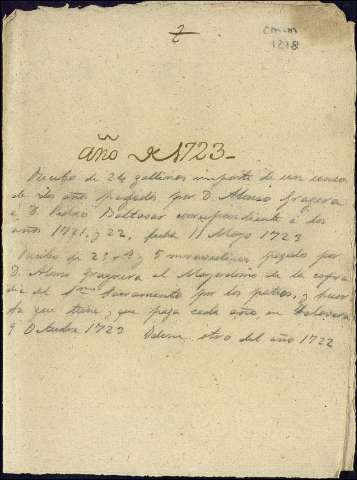 2
CM-M
1218
año de 1723-
Recibo de 24 gallinas importe de un censo
de dos años pagados por D. Alonso Gragera
a D. Pedro Baltasar correspondiente a los
años 1721, y 22, fecha 11 Mayo 1723
Recibo de 23 rs y 5 maravedises pagados por
D. Alonso Gragera al Mayordomo de la cofra
dia del Smo Sacramento por los patios, y huer
ta que tiene, y que paga cada año en Talavera
9 Octubre 1723 Idem otro del año 1722